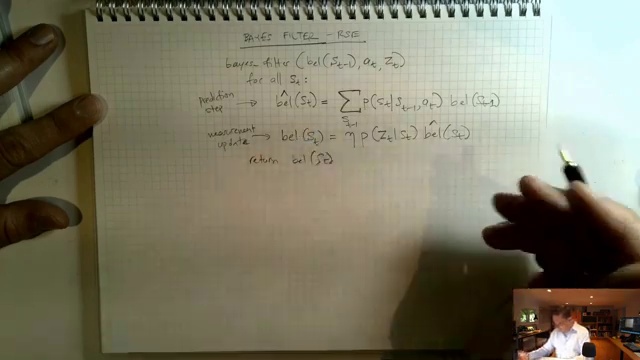 BAYES FILTER - RSE
bayes_filter (bel(St-1), at, Zt)
for all St:
prediction step → bel̂(St) = ∑St-1 p(St|St-1, at) bel(St-1)
measurement update → bel(St) = η p(Zt|St) bel̂(St)
return bel(St)